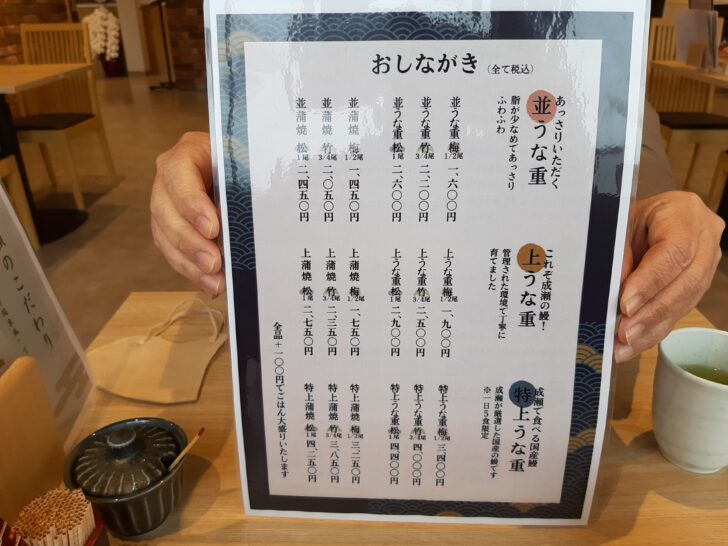 おしながき（全て税込）
あっさりいただく
並うな重
脂が少なめであっさり
ふわふわ
並うな重 梅 1/2尾 一、六〇〇円
並うな重 竹 3/4尾 二、二〇〇円
並うな重 松 1尾 二、六〇〇円
並蒲焼 梅 1/2尾 一、四五〇円
並蒲焼 竹 3/4尾 二、〇五〇円
並蒲焼 松 1尾 二、四五〇円
これぞ成瀬の鰻！
上うな重
管理された環境で丁寧に
育てました
上うな重 梅 1/2尾 一、九〇〇円
上うな重 竹 3/4尾 二、五〇〇円
上うな重 松 1尾 二、九〇〇円
上蒲焼 梅 1/2尾 一、七五〇円
上蒲焼 竹 3/4尾 二、三五〇円
上蒲焼 松 1尾 二、七五〇円
成瀬で食べる国産鰻
特上うな重
成瀬が厳選した国産の鰻です
※一日5食限定
特上うな重 梅 1/2尾 三、四〇〇円
特上うな重 竹 3/4尾 四、〇〇〇円
特上うな重 松 1尾 四、四〇〇円
特上蒲焼 梅 1/2尾 三、二五〇円
特上蒲焼 竹 3/4尾 三、八五〇円
特上蒲焼 松 1尾 四、二五〇円
全品＋一〇〇円でごはん大盛りいたします
のこだわり